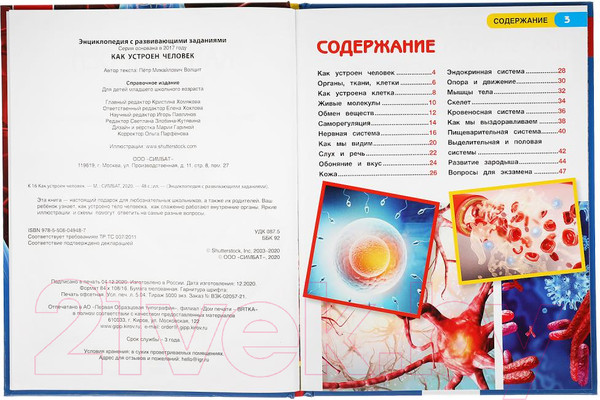 Энциклопедия с развивающими заданиями
Серия основана в 2017 году
КАК УСТРОЕН ЧЕЛОВЕК
Автор текста: Петр Михайлович Волцит
Справочное издание
Для детей младшего школьного возраста
Главный редактор Кристина Хомякова
Ответственный редактор Елена Хохлова
Научный редактор Игорь Павлинов
Редактор Светлана Злобина-Кутявина
Дизайн и верстка Мария Гарипой
Корректор Ольга Парфенова
www.shutterstock.com
ООО «СИМБАТ»
119619, г. Москва, Производственная ул., д. 11, стр. 8, пом. 27
К 16 Как устроен человек. — М.: СИМБАТ, 2020. — 48 с.: ил. — (Энциклопедия с развивающими заданиями).
Эта книга — настоящий подарок для любознательных школьников, а также их родителей. Ваш
ребенок узнает, как устроено тело человека, как слаженно работают внутренние органы. Яркие
иллюстрации и схемы помогут ответить на самые разные вопросы.
ISBN 978-5-506-04848-7
УДК 087.5
Соответствует требованиям ТР ТС 007/2011
ББК 92
Соответствие подтверждено декларацией
© Shutterstock, Inc, 2003–2020
© ООО «СИМБАТ», 2020
Подписано в печать 04.12.2020. Изготовлено в России. Дата изготовления: 12.2020.
Формат 84 х 108/16. Бумага мелованная. Гарнитура шрифта:
Печать офсетная. Усл. печ. л. 5,04. Тираж 5000 экз. Заказ № ВЗК-02057-21.
Отпечатано в АО «Первая Образцовая типография», филиал «Дом печати – ВЯТКА»
в полном соответствии с качеством предоставленных материалов.
610033, г. Киров, ул. Московская, 122
Срок службы – 3 года.
Условия хранения: в сухих проветриваемых помещениях.
Адрес для отзывов и пожеланий:
СОДЕРЖАНИЕ 3
СОДЕРЖАНИЕ
Как устроен человек 4
Органы, ткани, клетки 6
Как устроена клетка 8
Живые молекулы 10
Обмен веществ 12
Саморегуляция 14
Нервная система 16
Как мы видим 20
Слух и речь 22
Обоняние и вкус 24
Кожа 26
Эндокринная система 28
Опора и движение 30
Мышцы тела 32
Скелет 34
Кровеносная система 36
Как мы выздоравливаем 38
Пищеварительная система 40
Выделительная и половая
системы 42
Развитие зародыша 44
Вопросы для экзамена 47